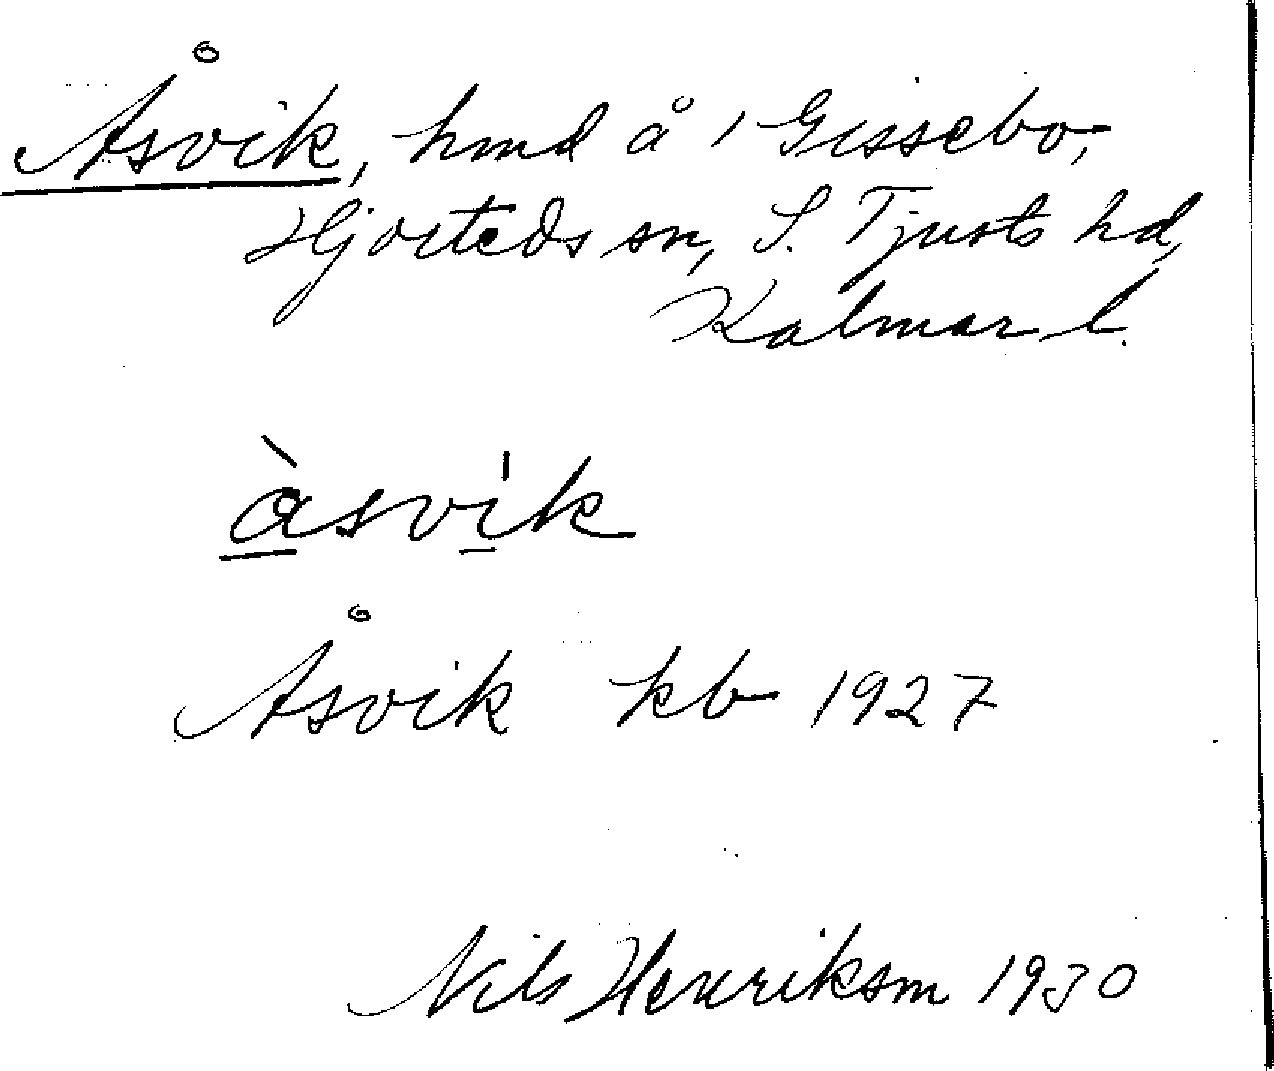 Åsvik, hmd å 1 Gissebo,
Hjorteds sn, S. Tjusts hd,
Kalmar l.
àsvik
Åsvik kb 1927
Nils Henrikson 1930